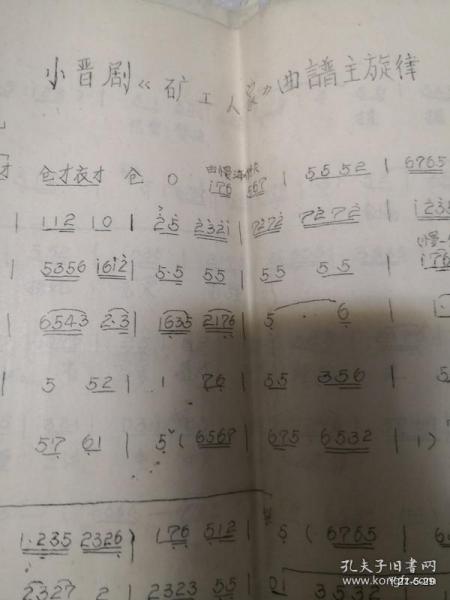 小晋剧《矿工人家》曲譜主旋律
才 仓才衣才 仓 0 由慢渐快 i76 567 | 55 52 | 6765
| 112 10 | 25 2321 | 7272 7272 | 1235
| 5356 1612 | 5·5 55 | 55 55 | 176
| 6543 2·3 | 1635 2176 | 5 6 | 1·
| 5 52 | 1 76 | 55 356 | 5
57 61 | 5 (6567 | 675 6532 | 1)
1·235 2326) | 176 512 | 5 (6765 | 6
2327 2 | 2323 55 | 01 3532 |
孔夫子旧书网
www.kongfz.com